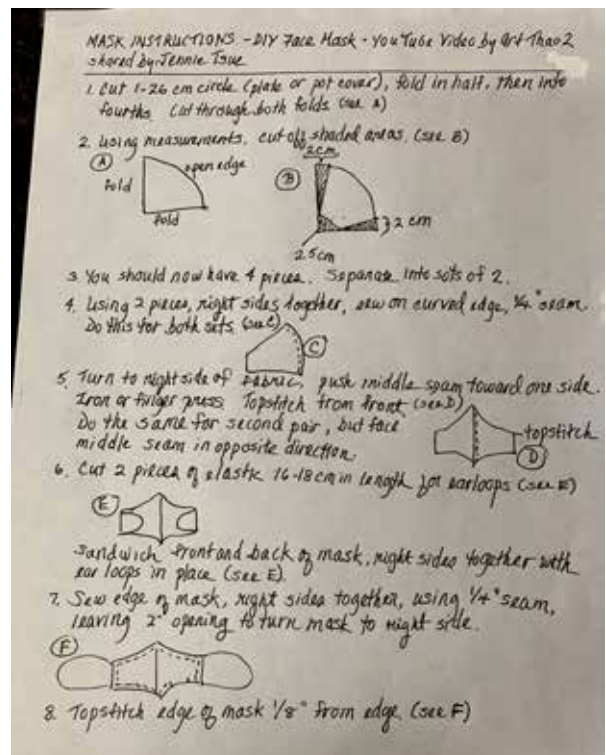 MASK INSTRUCTIONS - DIY Face Mask - YouTube Video by Art Thao 2
shared by Jennie Tsue
1. Cut 1-26 cm circle (plate or pot cover), fold in half, then into
fourths. Cut through both folds (see A)
2. Using measurements, cut off shaded areas. (see B)
2cm
A
open edge
fold
fold
B
2 cm
2.5cm
3. You should now have 4 pieces. Separate into sets of 2.
4. Using 2 pieces, right sides together, sew on curved edge, 1/4" seam.
Do this for both sets (see C)
C
5. Turn to right side of fabric, push middle seam toward one side.
Iron or finger press. Topstitch from front (see D)
Do the same for second pair, but face
middle seam in opposite direction.
topstitch
D
6. Cut 2 pieces of elastic 16-18cm in length for earloops (see E)
E
Sandwich front and back of mask, right sides together with
ear loops in place (see E).
7. Sew edge of mask, right sides together, using 1/4" seam,
leaving 2" opening to turn mask to right side.
F
8. Topstitch edge of mask 1/8" from edge. (see F)